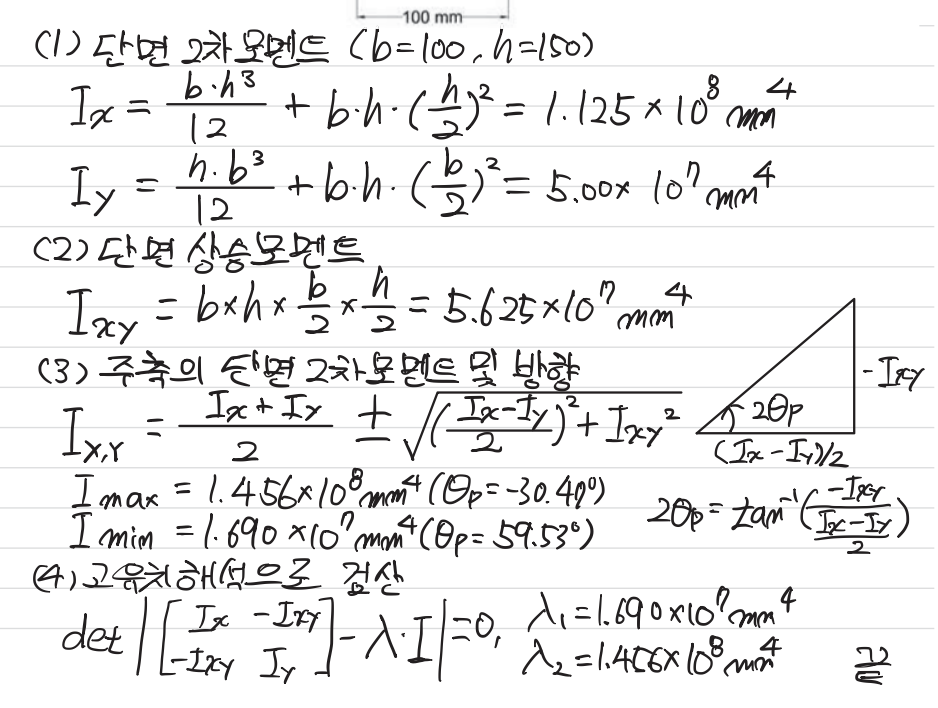 100 mm
(1) 단면 2차모멘트 (b=100, h=150)
Ix = b·h³/12 + b·h·(h/2)² = 1.125×10⁸ mm⁴
Iy = h·b³/12 + b·h·(b/2)² = 5.00×10⁷ mm⁴
(2) 단면 상승모멘트
Ixy = b×h×b/2×h/2 = 5.625×10⁷ mm⁴
(3) 주축의 단면 2차모멘트 및 방향
I_X,Y = (Ix+Iy)/2 ± √(((Ix-Iy)/2)² + Ixy²)
2θp
-Ixy
(Ix-Iy)/2
Imax = 1.456×10⁸mm⁴ (θp=-30.47°)
Imin = 1.690×10⁷mm⁴ (θp=59.53°)
2θp = tan⁻¹(-Ixy/((Ix-Iy)/2))
(4) 고유치해석으로 검산
det|[Ix -Ixy
-Ixy Iy] - λ·I| = 0,
λ₁=1.690×10⁷mm⁴
λ₂=1.456×10⁸mm⁴
끝